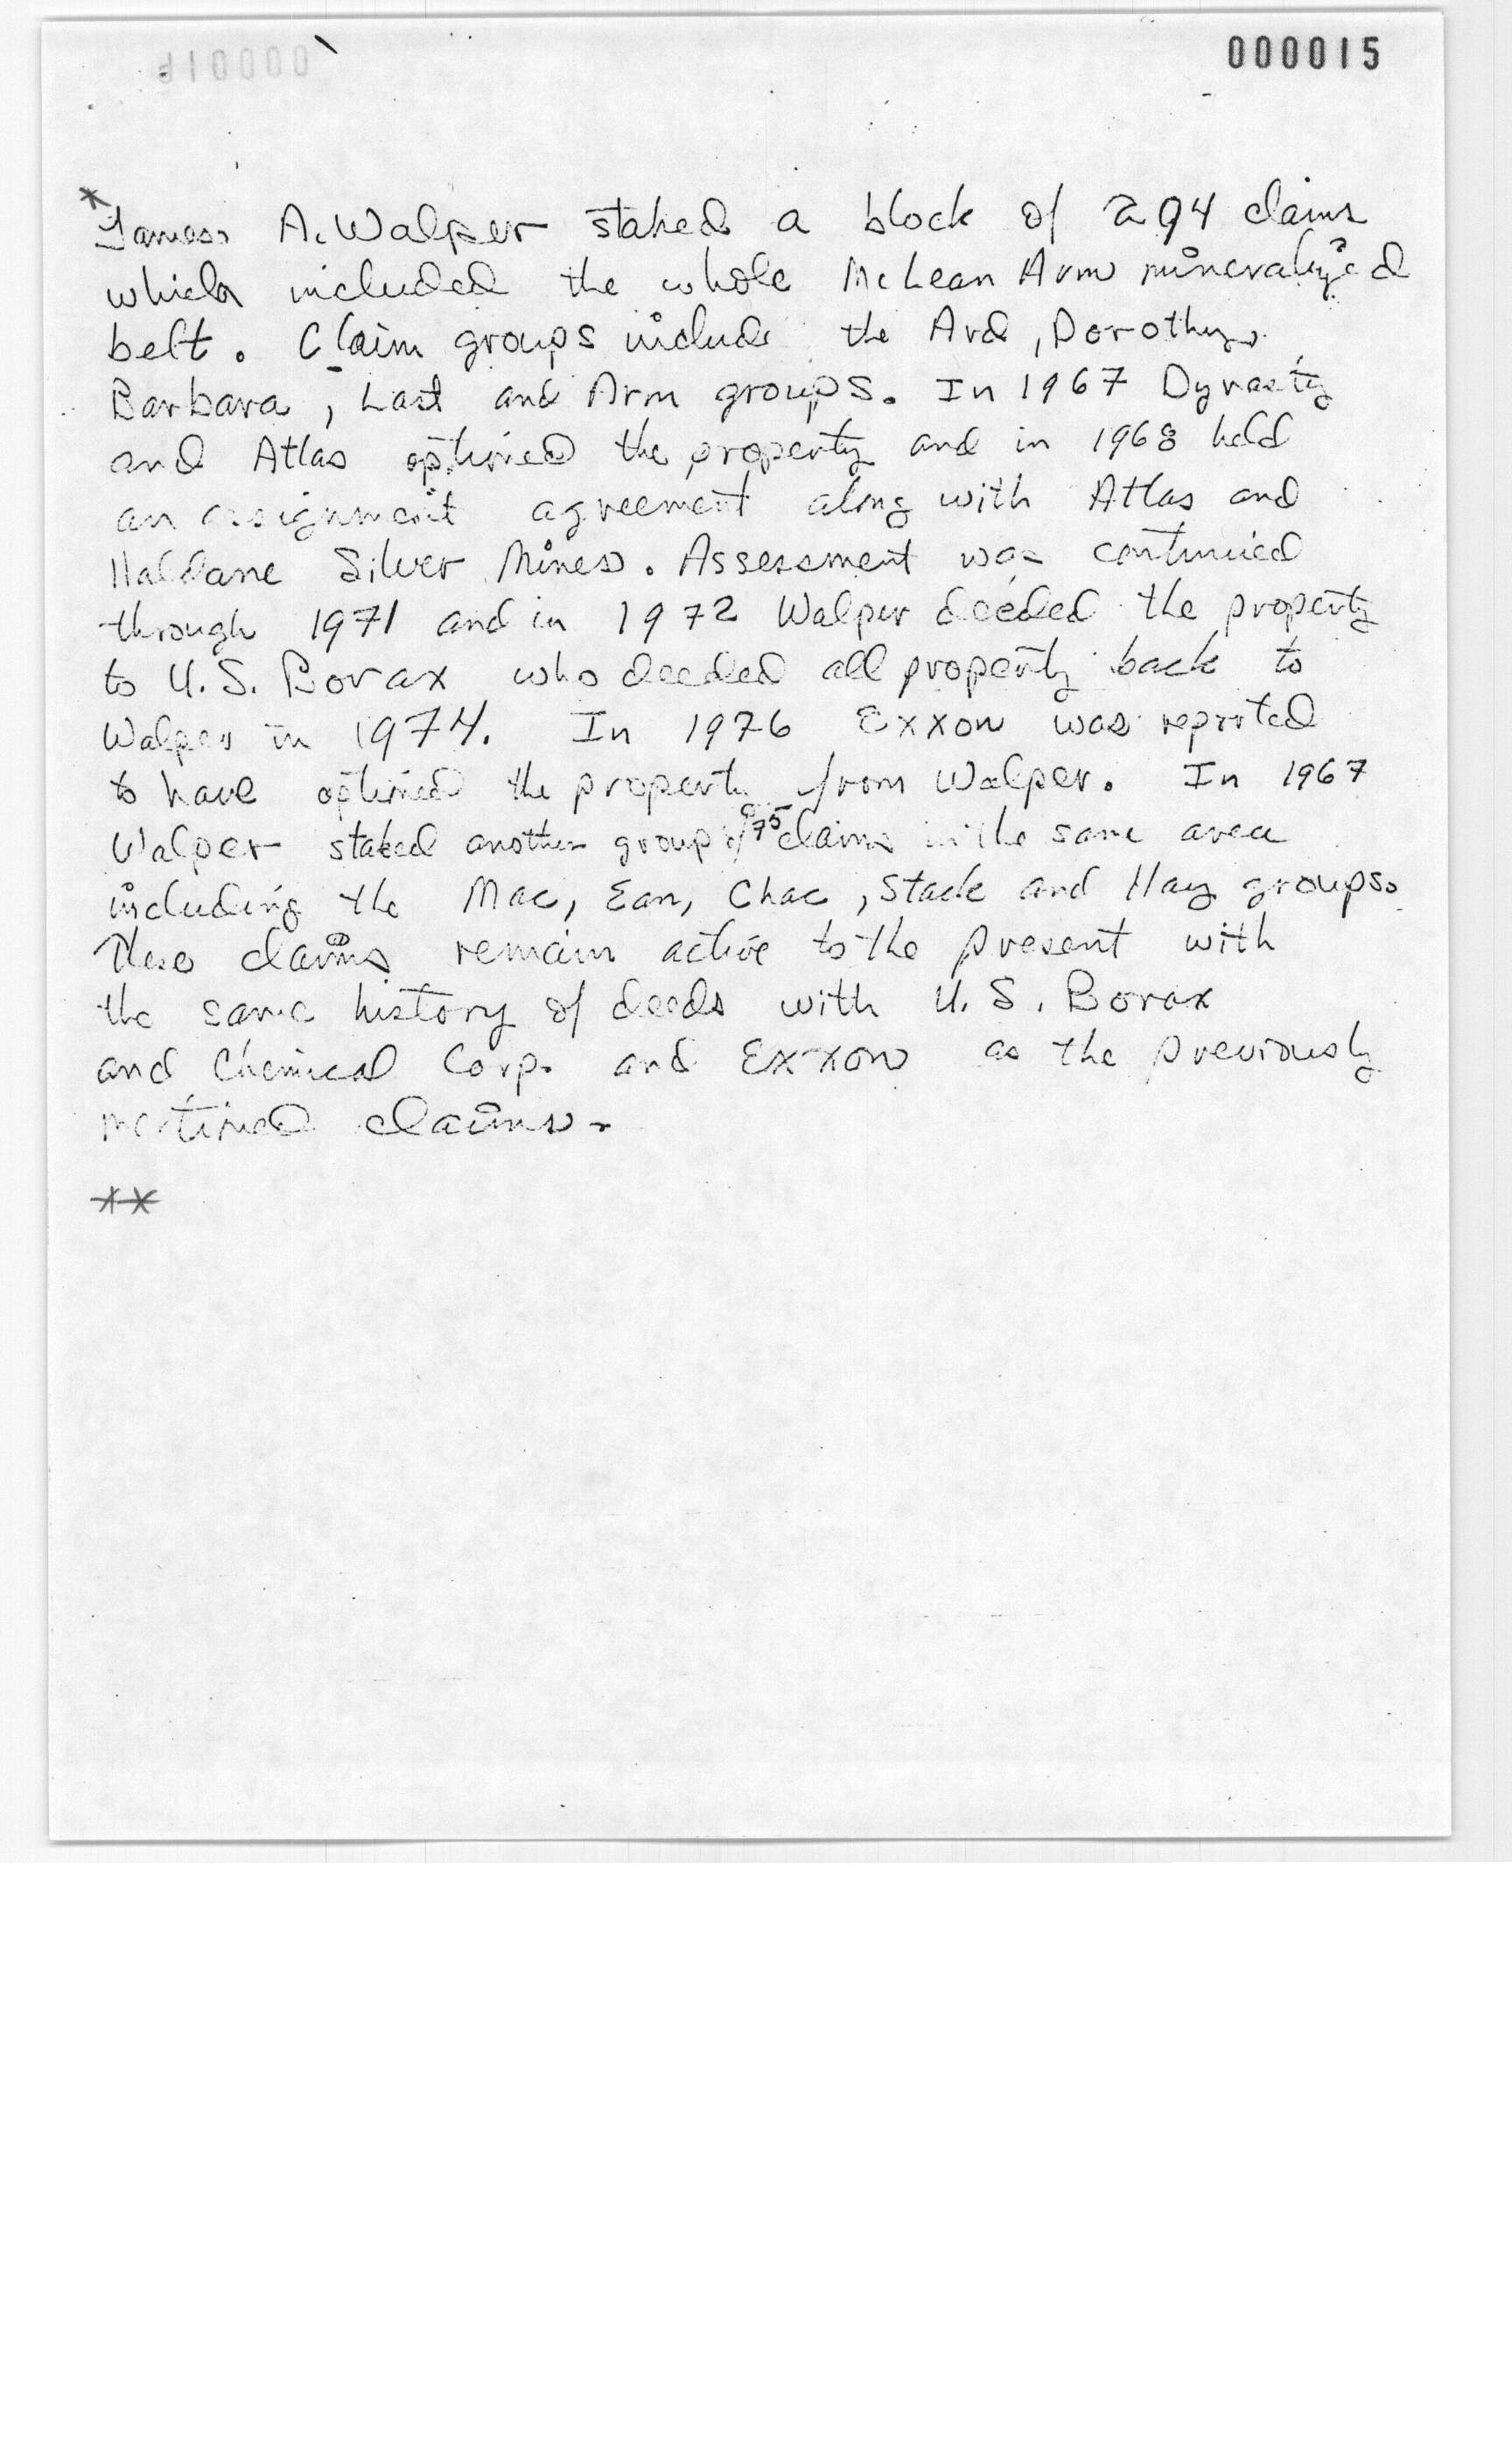 000015
* James A. Walper staked a block of 294 claims
which included the whole McLean Arm mineralized
belt. Claim groups include the Ard, Dorothy,
Barbara, Last and Arm groups. In 1967 Dynasty
and Atlas optioned the property and in 1968 held
an assignment agreement along with Atlas and
Haldane Silver Mines. Assessment was continued
through 1971 and in 1972 Walper deeded the property
to U.S. Borax who deeded all property back to
Walper in 1974. In 1976 Exxon was reported
to have optioned the property from Walper. In 1967
Walper staked another group of 75 claims in the same area
including the Mac, Ean, Chac, Stack and Hay groups.
These claims remain active to the present with
the same history of deeds with U.S. Borax
and Chemical Corp. and Exxon as the previously
mentioned claims.
**